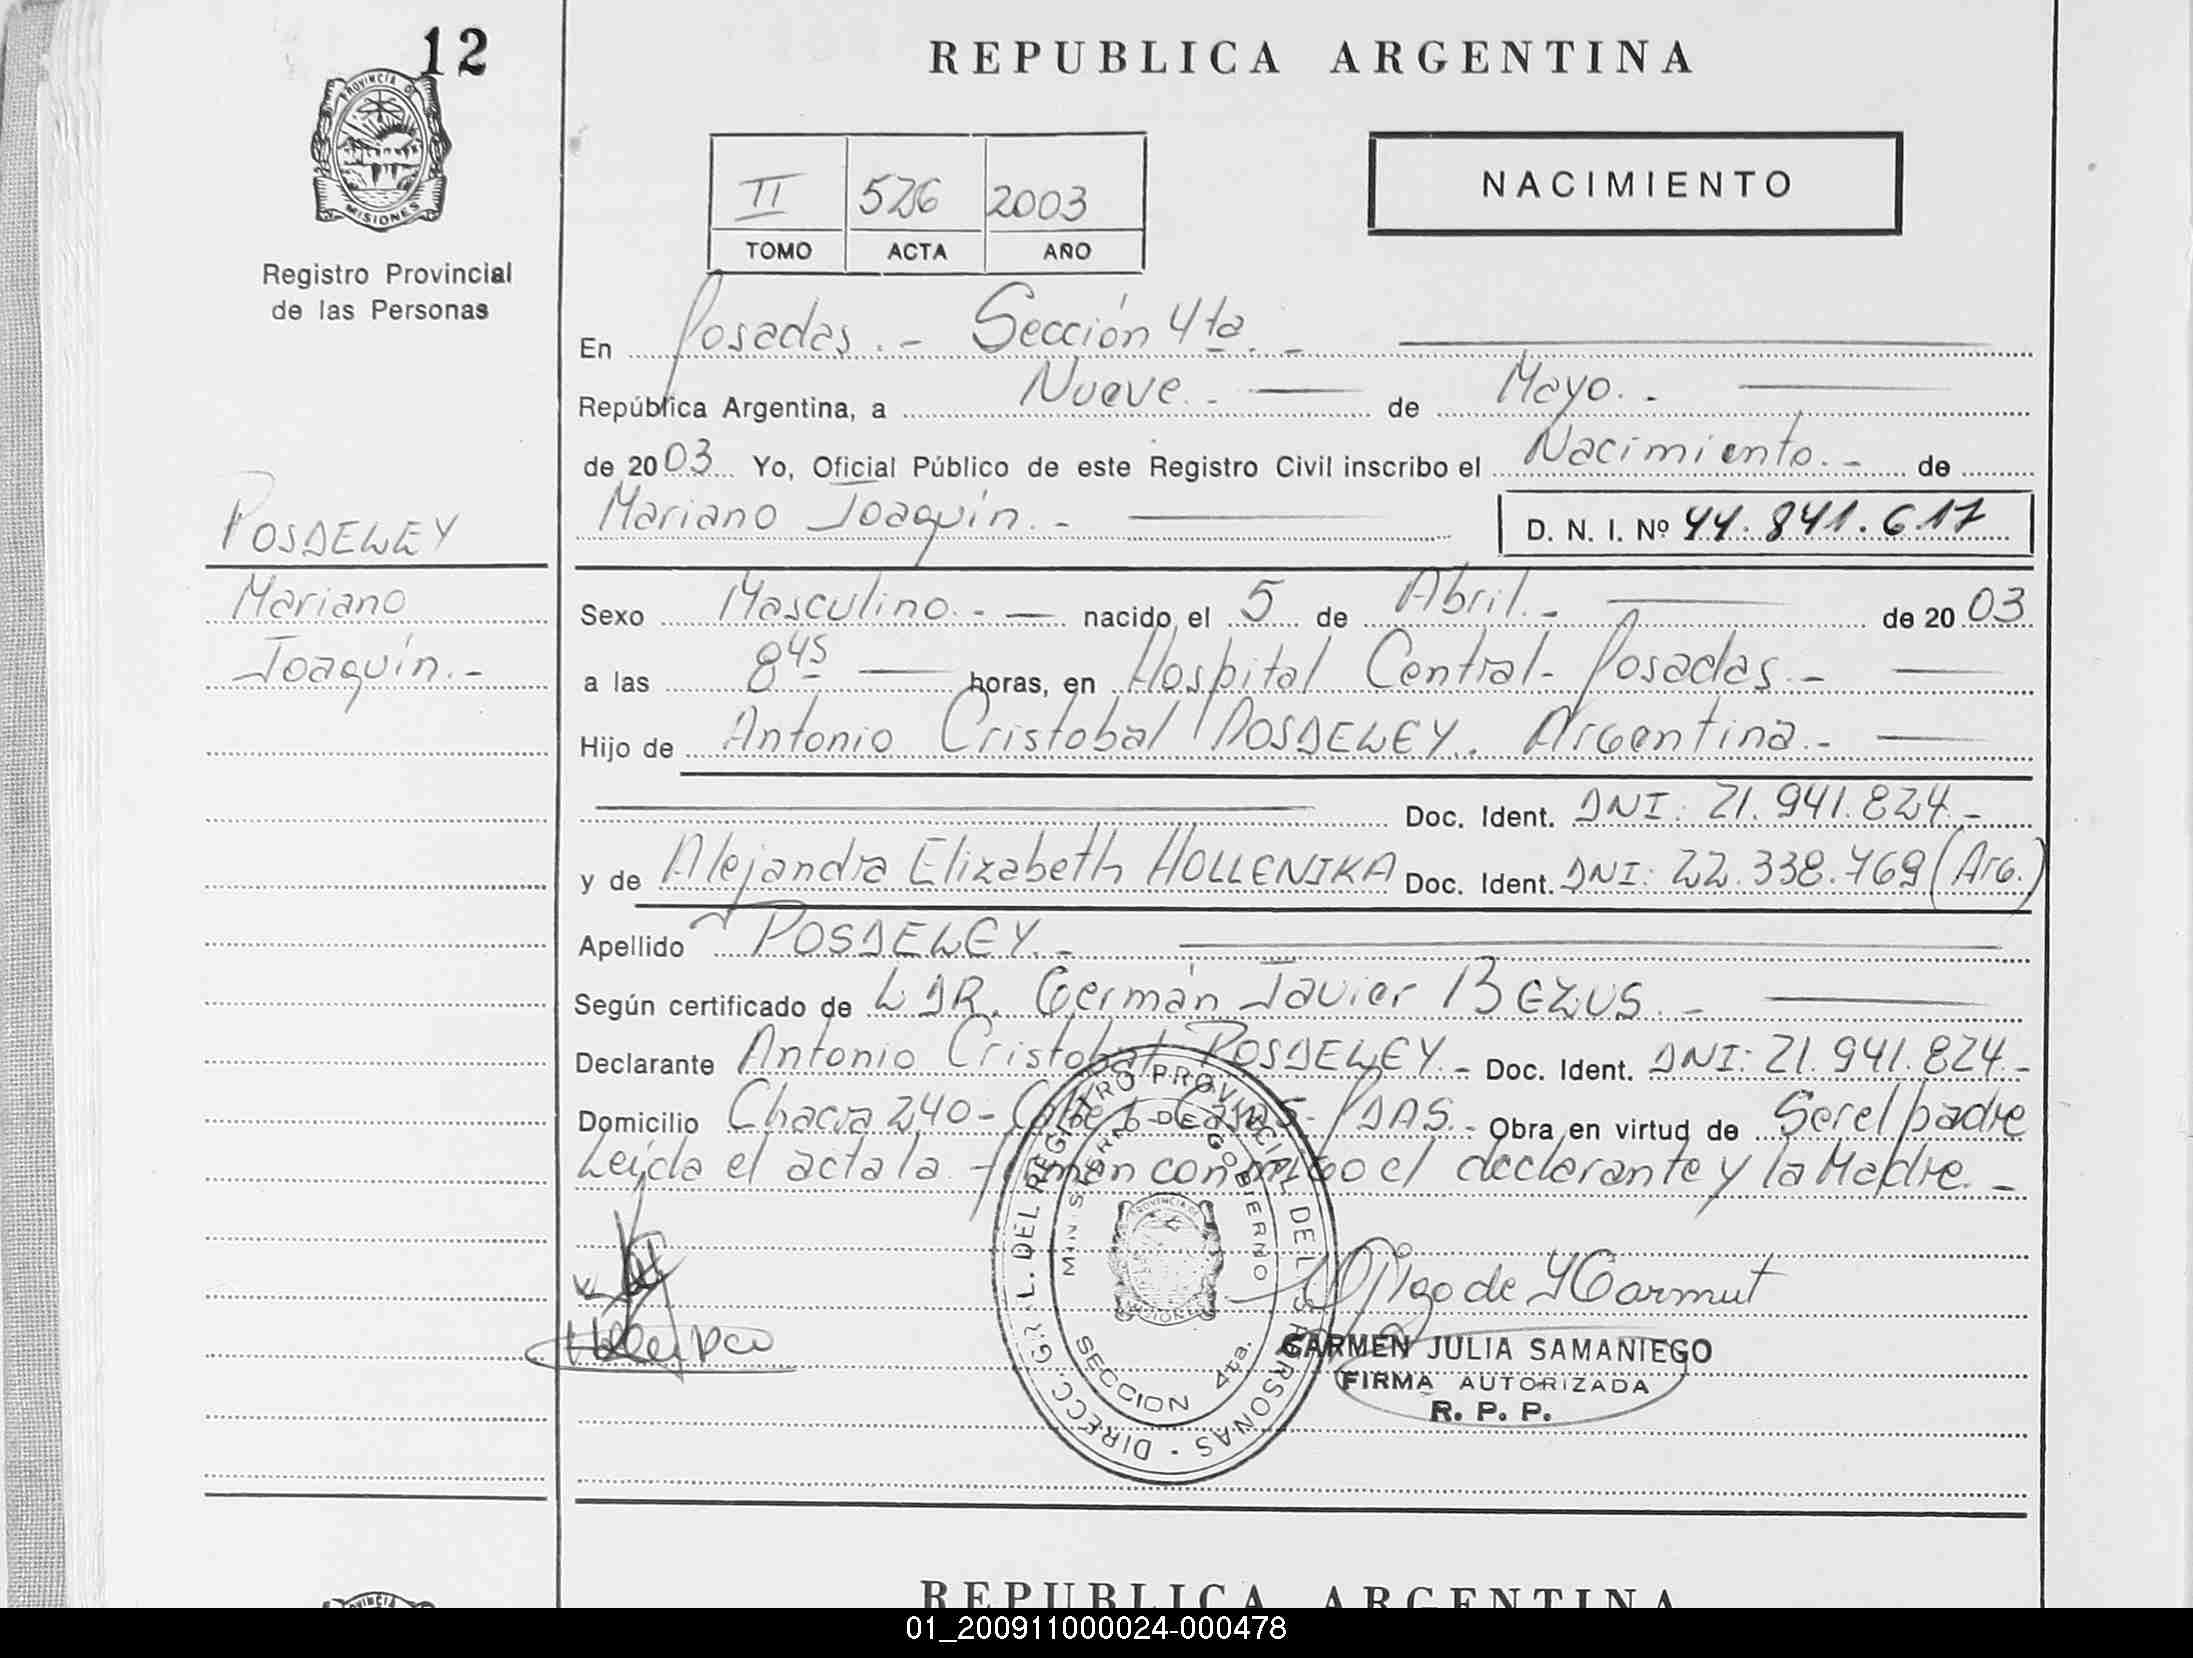 12
REPUBLICA ARGENTINA
PROVINCIA DE
MISIONES
Registro Provincial
de las Personas
II 526 2003
TOMO ACTA AÑO
NACIMIENTO
En Posadas.- Sección 4ta.-
República Argentina, a Nueve.- de Mayo.-
de 2003 Yo, Oficial Público de este Registro Civil inscribo el Nacimiento.- de
Mariano Joaquín.- D. N. I. Nº 44.841.617
POSDELEY
Mariano
Joaquín.-
Sexo Masculino.- nacido el 5 de Abril.- de 2003
a las 8 45 horas, en Hospital Central- Posadas.-
Hijo de Antonio Cristobal POSDELEY. Argentina.-
Doc. Ident. DNI: 21.941.824.-
y de Alejandra Elizabeth HOLLENIKA Doc. Ident. DNI: 22.338.769 (Arg.)
Apellido POSDELEY.-
Según certificado de LDR. Germán Javier BEZUS.-
Declarante Antonio Cristobal POSDELEY.- Doc. Ident. DNI: 21.941.824.-
Domicilio Chacra 240- Casas- PDAS.- Obra en virtud de Ser el padre
Leída el acta la firman conmigo el declarante y la Madre.-
DIRECC. GRL. DEL REGISTRO PROVINCIAL DE LAS PERSONAS
MINISTERIO DE GOBIERNO
SECCION 4ta.
CARMEN JULIA SAMANIEGO
FIRMA AUTORIZADA
R. P. P.
REPUBLICA ARGENTINA
01_200911000024-000478